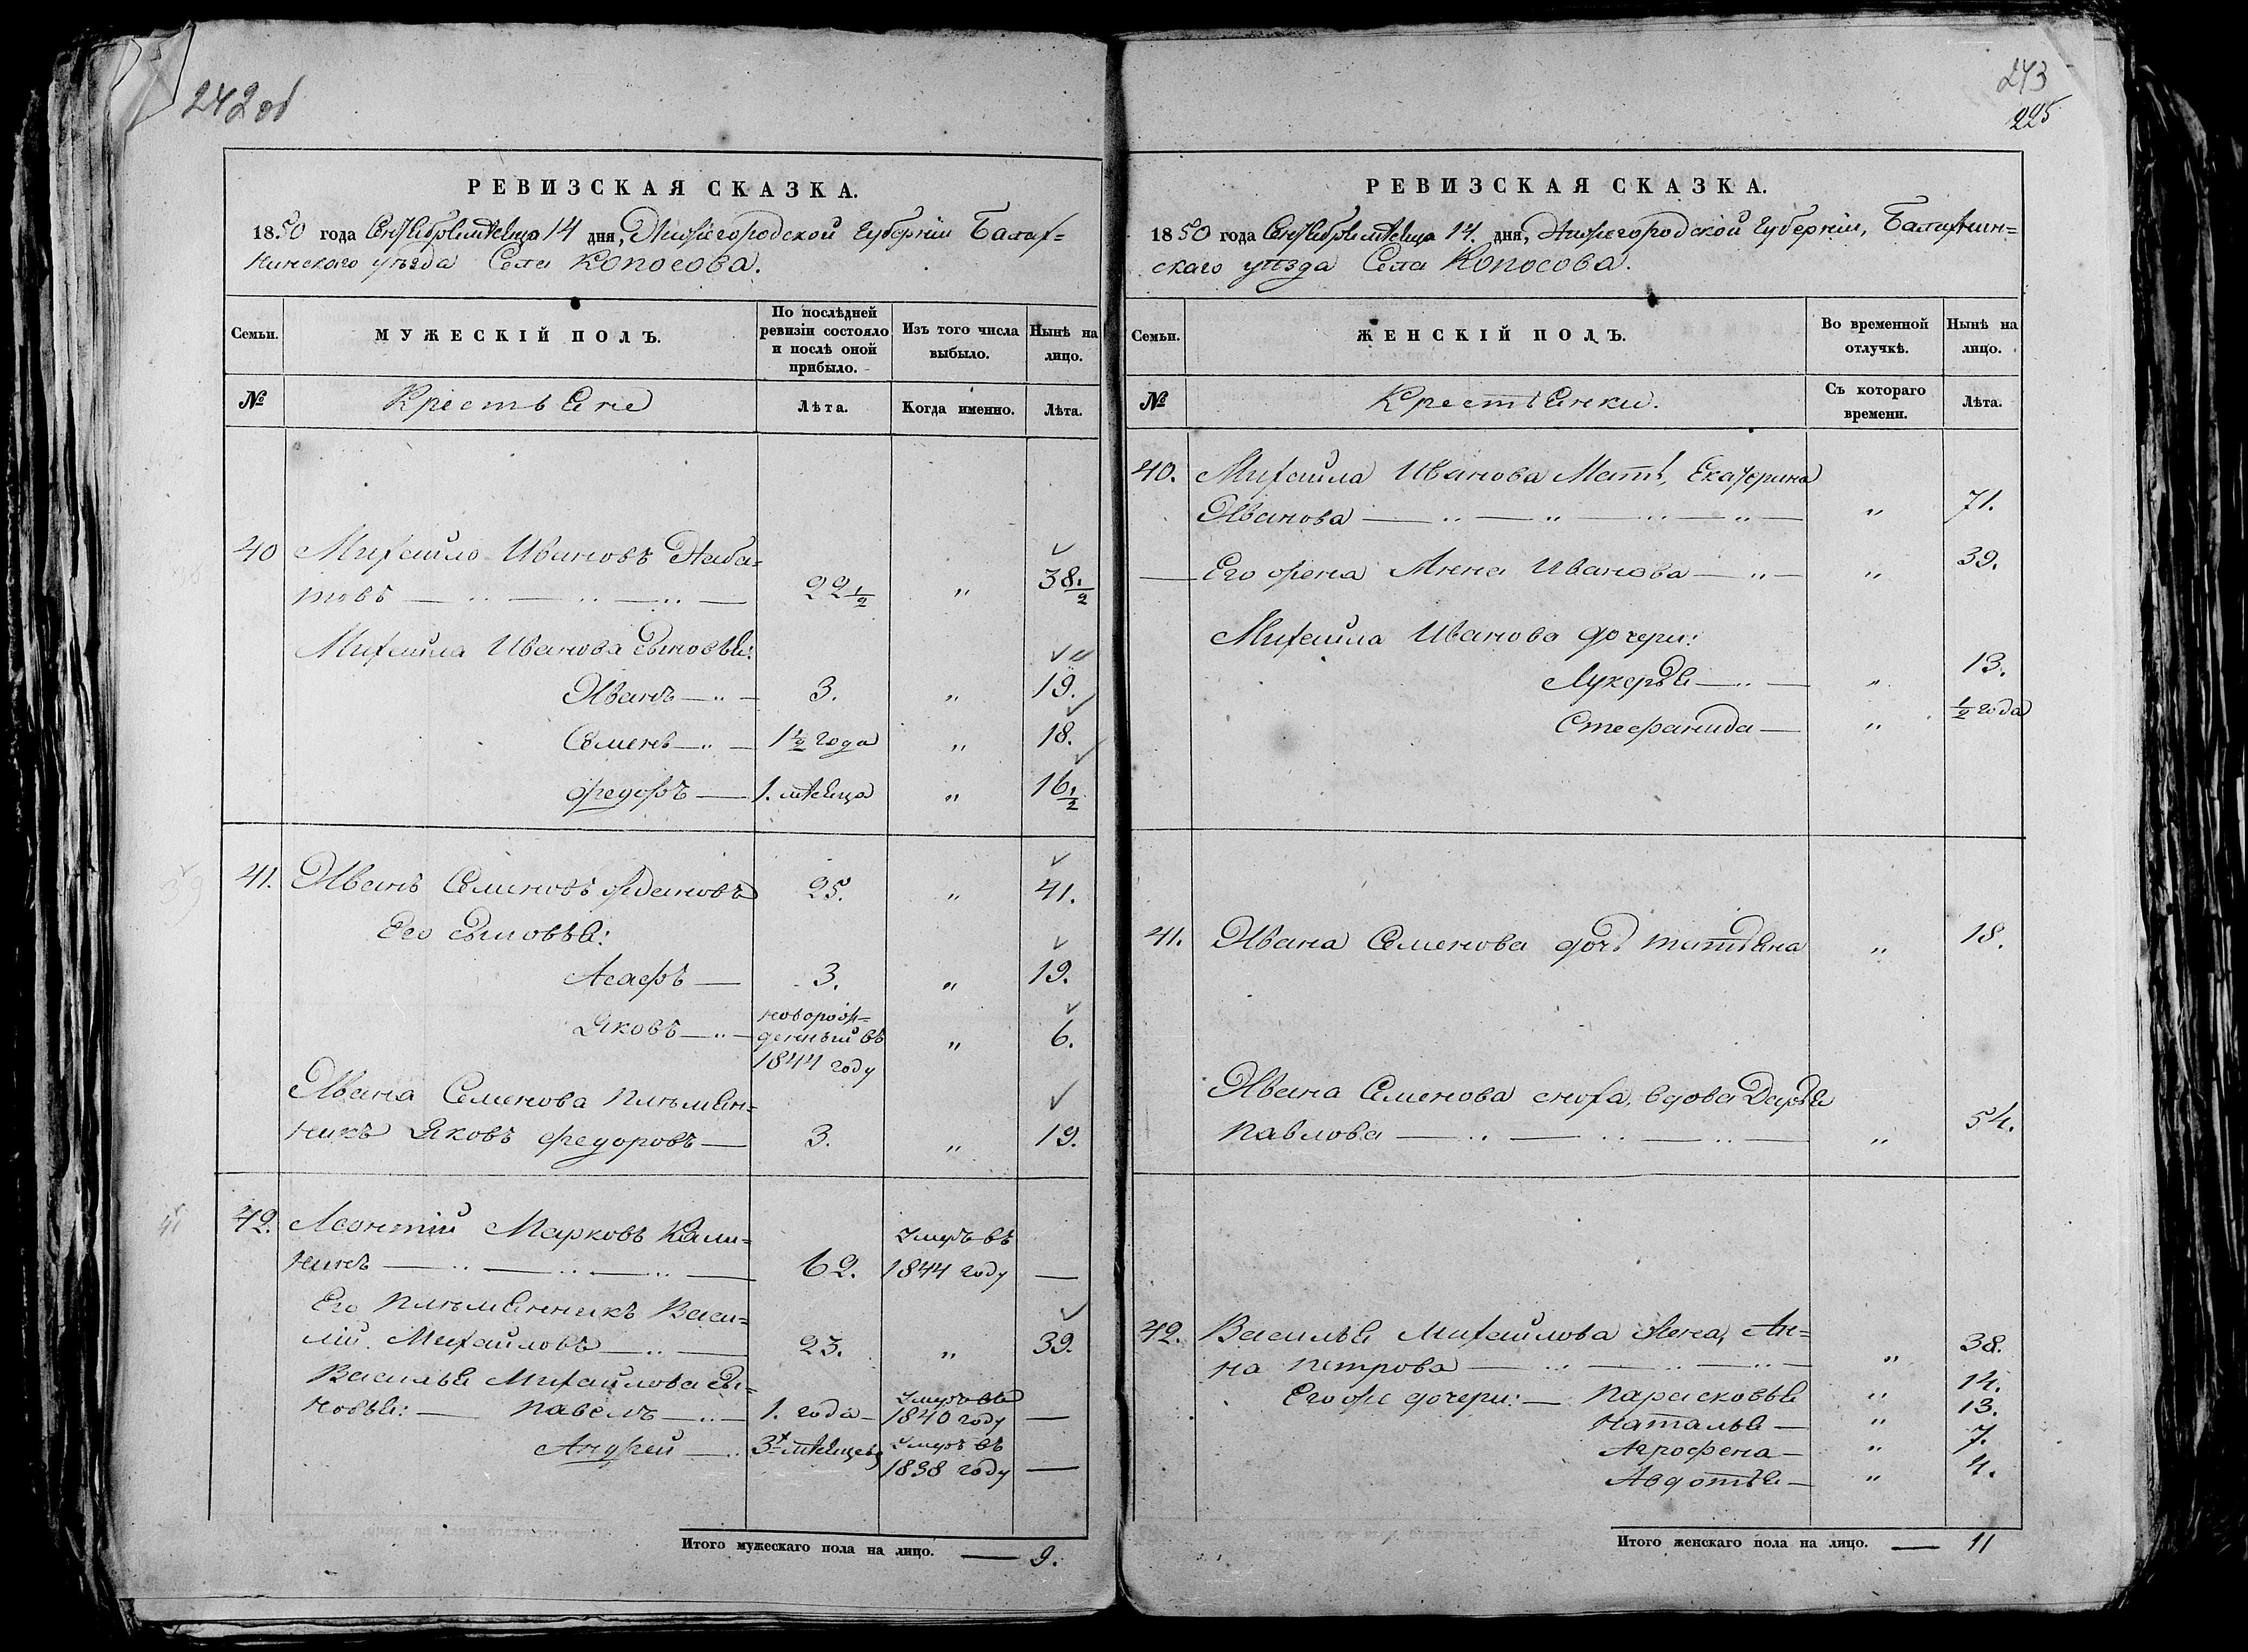 242 об
РЕВИЗСКАЯ СКАЗКА.
1850 года Сентября месяца 14 дня, Нижегородской Губернии Балах=
нинского уѣзда Села Копосова.
Семьи.
МУЖЕСКІЙ ПОЛЪ.
По послѣдней ревизіи состояло и послѣ оной прибыло.
Изъ того числа выбыло.
Нынѣ на лицо.
№
Крестьяне
Лѣта.
Когда именно.
Лѣта.
40 Михайло Ивановъ
товъ 22 1/2 " 38 1/2
Михайла Иванова сыновья:
Иванъ 3. " 19.
Семенъ 1 1/2 года " 18.
Федоръ 1. мѣсяца " 16 1/2
41. Иванъ Семеновъ Ждановъ 25. " 41.
Его сыновья:
Асафъ 3. " 19.
Яковъ новорож=
денный въ " 6.
1844 году
Ивана Семенова племян=
никъ Яковъ Федоровъ 3. " 19.
42. Леонтій Марковъ Кали= умеръ въ
нинъ 62. 1844 году —
Его племянникъ Васи=
лій Михайловъ 23. " 39.
Василья Михайлова сы= умеръ въ
новья: Павелъ 1. года 1840 году —
Андрей 3х мѣсяцевъ умеръ въ
1838 году —
Итого мужескаго пола на лицо. — 9.
243
225
РЕВИЗСКАЯ СКАЗКА.
1850 года Сентября месяца 14. дня, Нижегородской Губерніи, Балахнин=
скаго уѣзда Села Копосова.
Семьи.
ЖЕНСКІЙ ПОЛЪ.
Во временной отлучкѣ.
Нынѣ на лицо.
№
Крестьянки.
Съ котораго времени.
Лѣта.
40. Михайла Иванова Мать, Екатерина
Иванова " 71.
Его жена Анна Иванова " 39.
Михайла Иванова дочери:
Лукерья " 13.
Стефанида " 1/2 года
41. Ивана Семенова дочь Татьяна " 18.
Ивана Семенова сноха, вдова Дарья
Павлова " 54.
42. Василья Михайлова жена, Ан=
на Петрова " 38.
Его же дочери: — Парасковья " 14.
Наталья " 13.
Агрофена " 7.
Авдотья " 4.
Итого женскаго пола на лицо. — 11